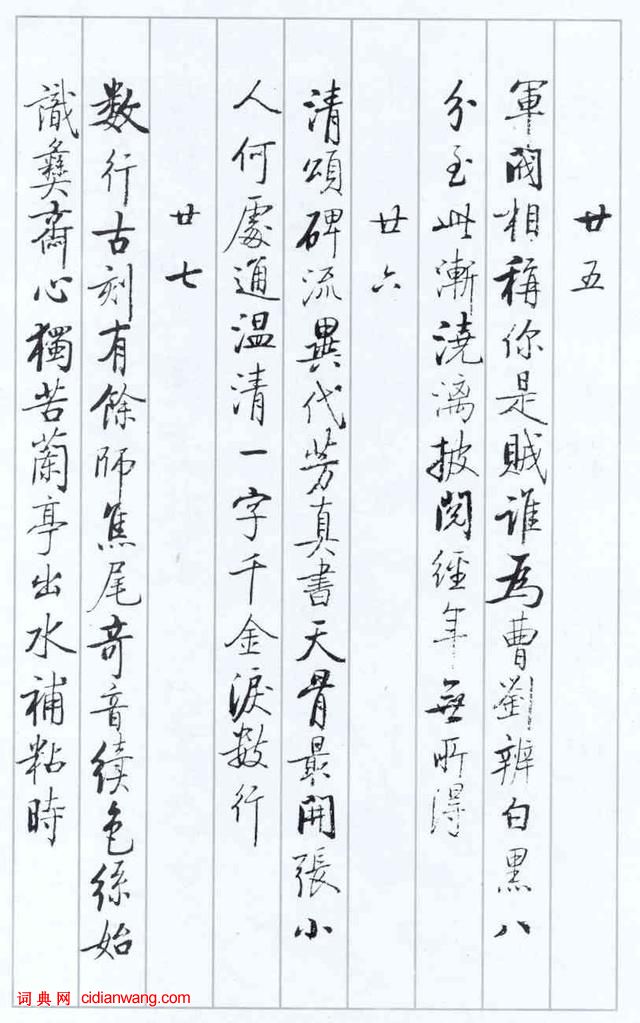 廿五
軍閥相稱你是賊誰爲曹劉辨白黑八
分至此漸澆漓披閱經年無所得
廿六
清頌碑流異代芳真書天骨最開張小
人何處通温清一字千金淚數行
廿七
数行古刻有餘師焦尾奇音續色絲始
識彝齋心獨苦蘭亭出水補粘時
词典网 cidianwang.com